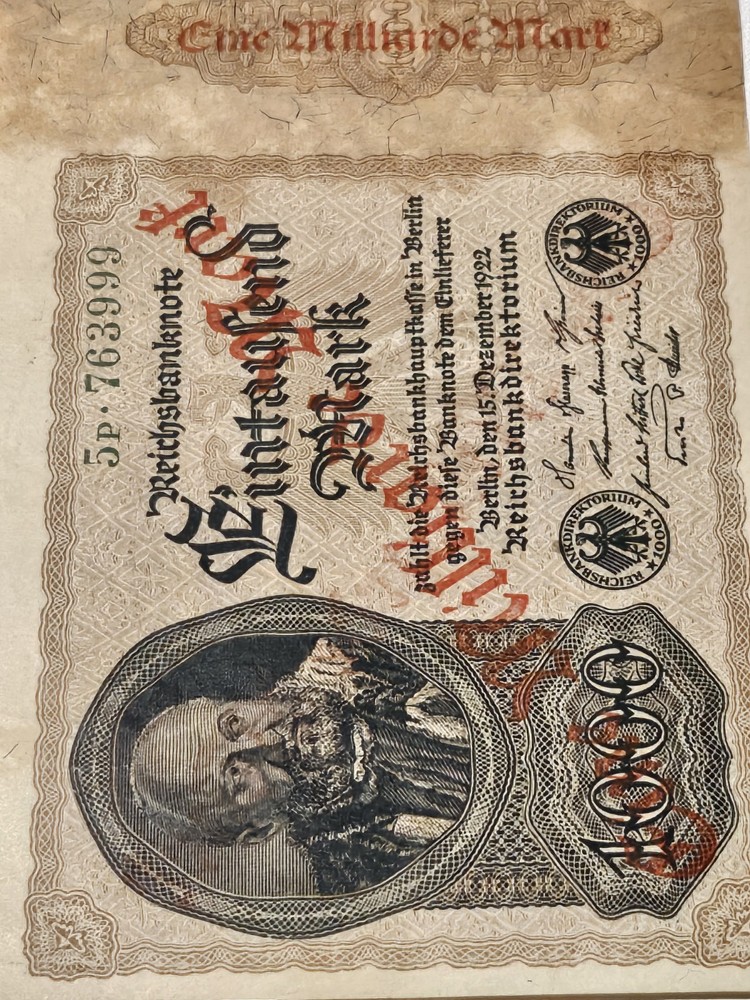 Eine Milliarde Mark
5P· 763999
Reichsbanknote
Eintausend
Mark
zahlt die Reichsbankhauptkasse in Berlin
gegen diese Banknote dem Einlieferer
Berlin, den 15. Dezember 1922
Reichsbankdirektorium
REICHSBANKDIREKTORIUM ★ 1000 ★
REICHSBANKDIREKTORIUM ★ 1000 ★
1000
Eine Milliarde Mark